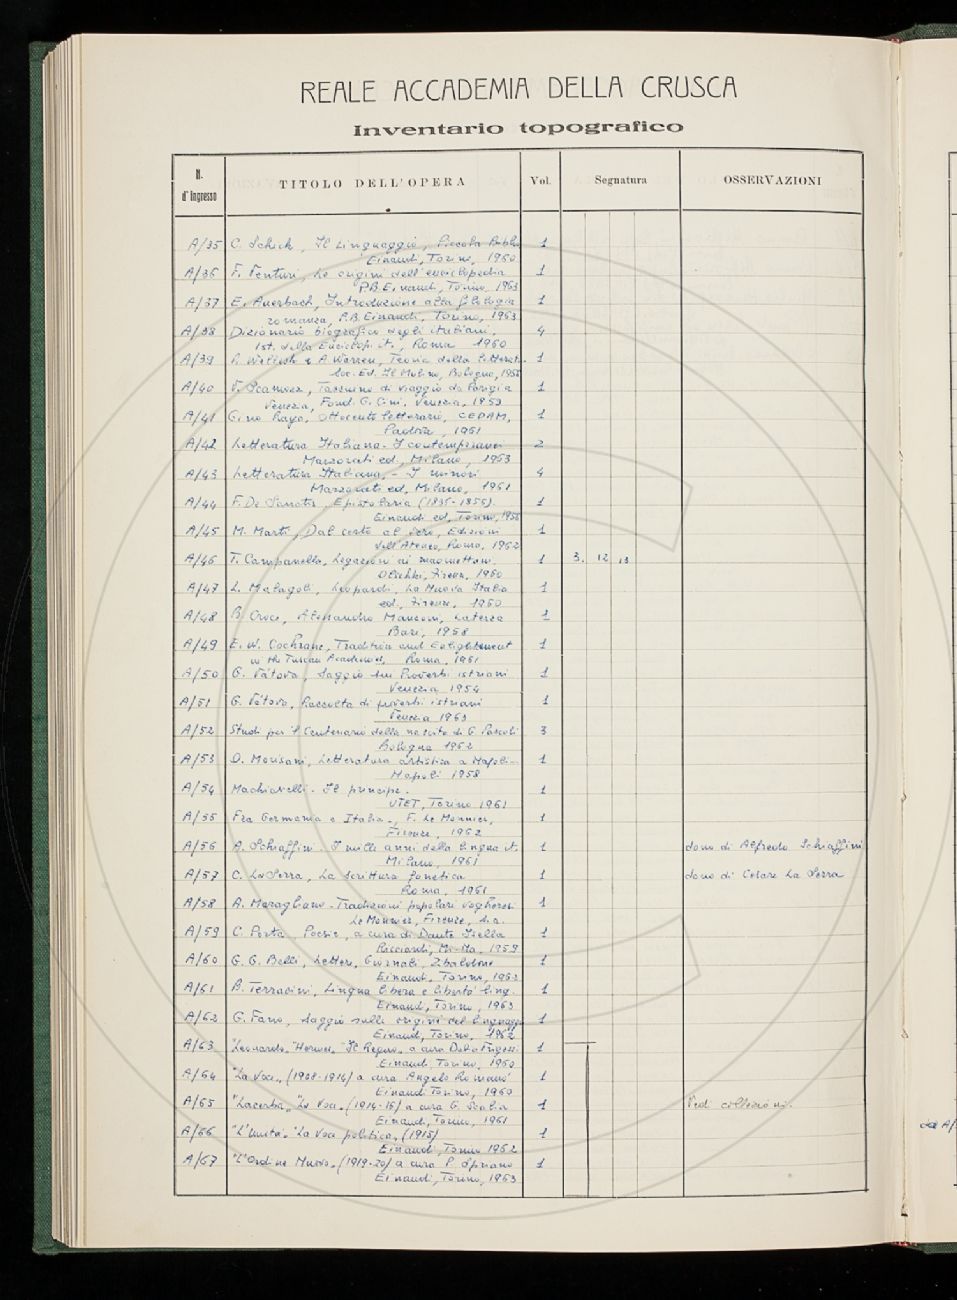 REALE ACCADEMIA DELLA CRUSCA
Inventario topografico
N. d'Ingresso TITOLO DELL'OPERA Vol. Segnatura OSSERVAZIONI
A/35 C. Schick, Il linguaggio, Piccola Bibl. 1
Einaudi, Torino, 1960
A/36 F. Venturi, Le origini dell'enciclopedia 1
P.B. Einaudi, Torino, 1963
A/37 E. Auerbach, Introduzione alla filologia 1
romanza, P.B. Einaudi, Torino, 1963
A/38 Dizionario biografico degli italiani, 4
Ist. della Enciclop. it., Roma 1960
A/39 R. Wellek e A. Warren, Teoria della letterat. 1
Soc. Ed. Il Mulino, Bologna, 1956
A/40 V. Scamozzi, Taccuino di viaggio da Parigi a 1
Venezia, Fond. G. Cini, Venezia, 1959
A/41 Gino Raya, Ottocento letterario, CEDAM, 1
Padova, 1961
A/42 Letteratura Italiana - I contemporanei 2
Marzorati ed., Milano, 1963
A/43 Letteratura Italiana, - I minori 4
Marzorati ed, Milano, 1961
A/44 F. De Sanctis, Epistolario (1836-1856) 1
Einaudi ed, Torino, 1956
A/45 M. Marti, Dal certo al vero, Edizioni 1
dell'Ateneo, Roma, 1962
A/46 T. Campanella, Legazioni ai maomettani 1 3. 12 13
Olschki, Firenze, 1960
A/47 L. Malagoli, Leopardi, La Nuova Italia 1
ed., Firenze, 1960
A/48 B. Croce, Alessandro Manzoni, Laterza 1
Bari, 1958
A/49 E. W. Cochrane, Tradition and Enlightenment 1
in the Tuscan Academies, Roma, 1961
A/50 G. Vàtova, Saggio sui Proverbi istriani 1
Venezia 1954
A/51 G. Vàtova, Raccolta di proverbi istriani 1
Venezia 1963
A/52 Studi per il Centenario della nascita di G. Pascoli 3
Bologna 1962
A/53 O. Morisani, Letteratura artistica a Napoli - 1
Napoli 1958
A/54 Machiavelli - Il principe. 1
UTET, Torino 1961
A/55 Fra Germania e Italia., F. Le Monnier, 1
Firenze, 1962
A/56 A. Schiaffini - I mille anni della lingua it. 1 dono di Alfredo Schiaffini
Milano, 1961
A/57 C. La Serra, La scrittura fonetica 1 dono di Cesare La Serra
Roma, 1961
A/58 A. Maragliano - Tradizioni popolari vogheresi 1
Le Monnier, Firenze, s.a.
A/59 C. Porta, Poesie, a cura di Dante Isella 1
Ricciardi, Mi-Na. 1959
A/60 G. G. Belli, Lettere, Giornali, Zibaldone 1
Einaudi, Torino, 1962
A/61 B. Terracini, Lingua libera e libertà ling. 1
Einaudi, Torino, 1963
A/62 G. Fano, Saggio sulle origini del linguaggio 1
Einaudi, Torino, 1962
A/63 "Leonardo" "Hermes" "Il Regno" a cura Delia Frigessi 1
Einaudi, Torino, 1960
A/64 "La Voce" (1908-1914) a cura Angelo Romanò 1
Einaudi Torino, 1960
A/65 "Lacerba" "La Voce" (1914-16) a cura G. Scalia 1 Vedi collezioni.
Einaudi, Torino, 1961
A/66 "L'Unità" "La Voce politica" (1915) 1
Einaudi, Torino 1962
A/67 "L'Ordine Nuovo" (1919-20) a cura P. Spriano 1
Einaudi, Torino, 1963